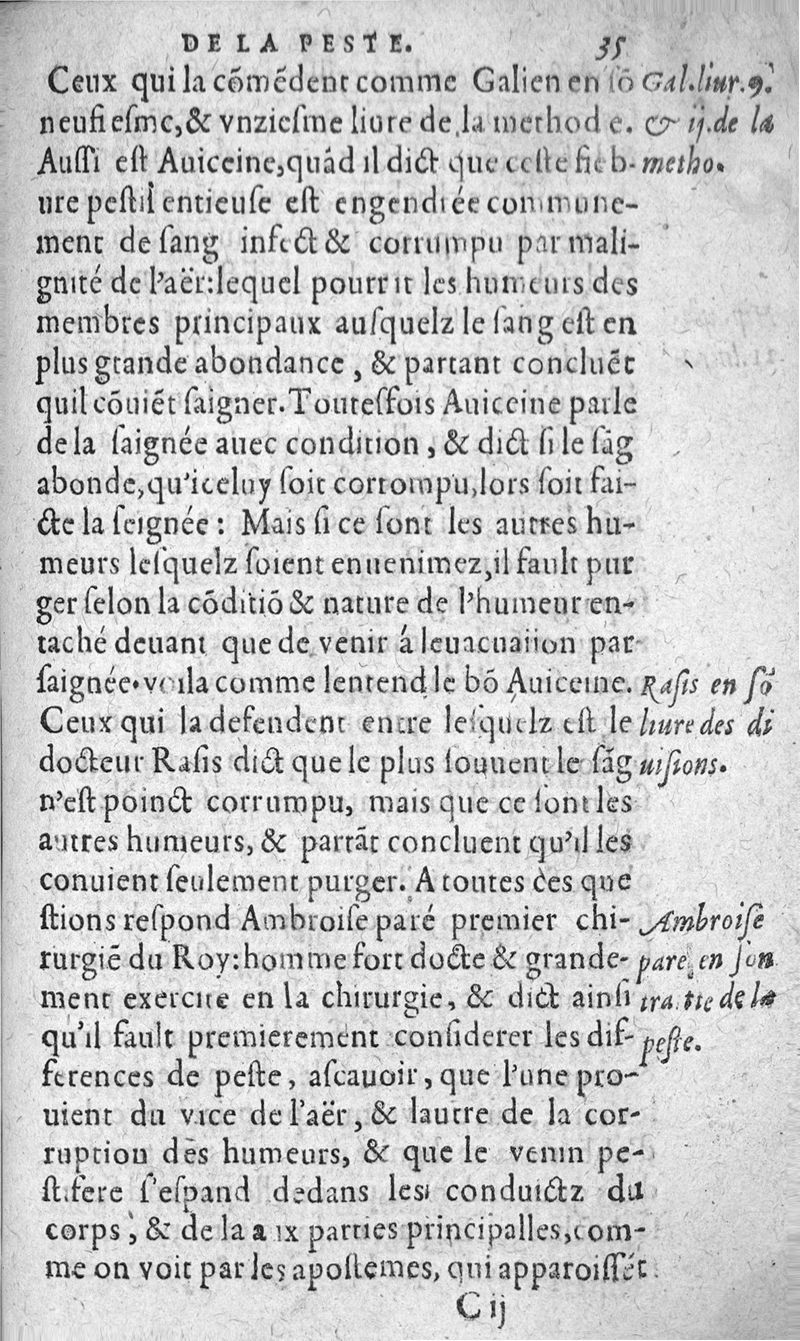 DE LA PESTE. 35
Ceux qui la cõmẽdent comme Galien en sõ
neufiesme,& vnziesme liure de la methode.
Aussi est Auiceine,quãd il dict que ceste fieb-
ure pestilentieuse est engendrée commune-
ment de sang infect & corrumpu par mali-
gnité de l'aër:lequel pourrit les humeurs des
membres principaux ausquelz le sang est en
plus grande abondance , & partant concluẽt
quil cõuiẽt saigner.Toutesfois Auiceine parle
de la saignée auec condition , & dict si le sãg
abonde,qu'iceluy soit corrompu,lors soit fai-
cte la seignée : Mais si ce sont les autres hu-
meurs lesquelz soient enuenimez,il fault pur
ger selon la cõditiõ & nature de l'humeur en-
taché deuant que de venir á leuacuaiion par
saignée.voila comme lentend le bõ Auiceine.
Ceux qui la defendent entre lesquelz est le
docteur Rasis dict que le plus souuent le sãg
n'est poinct corrumpu, mais que ce sont les
autres humeurs, & partãt concluent qu'il les
conuient seulement purger. A toutes ces que
stions respond Ambroise paré premier chi-
rurgiẽ du Roy:homme fort docte & grande-
ment exercité en la chirurgie, & dict ainsi
qu'il fault premierement considerer les dif-
ferences de peste, ascauoir, que l'une pro-
uient du vice de l'aër, & lautre de la cor-
ruption des humeurs, & que le venin pe-
stifere s'espand dedans les conduictz du
corps, & de la aux parties principalles,com-
me on voit par les apostemes, qui apparoissẽt
C ij
Gal.liur.9.
& ij.de la
metho.
Rasis en sõ
liure des di
uisions.
Ambroise
pare en son
traitte de la
peste.